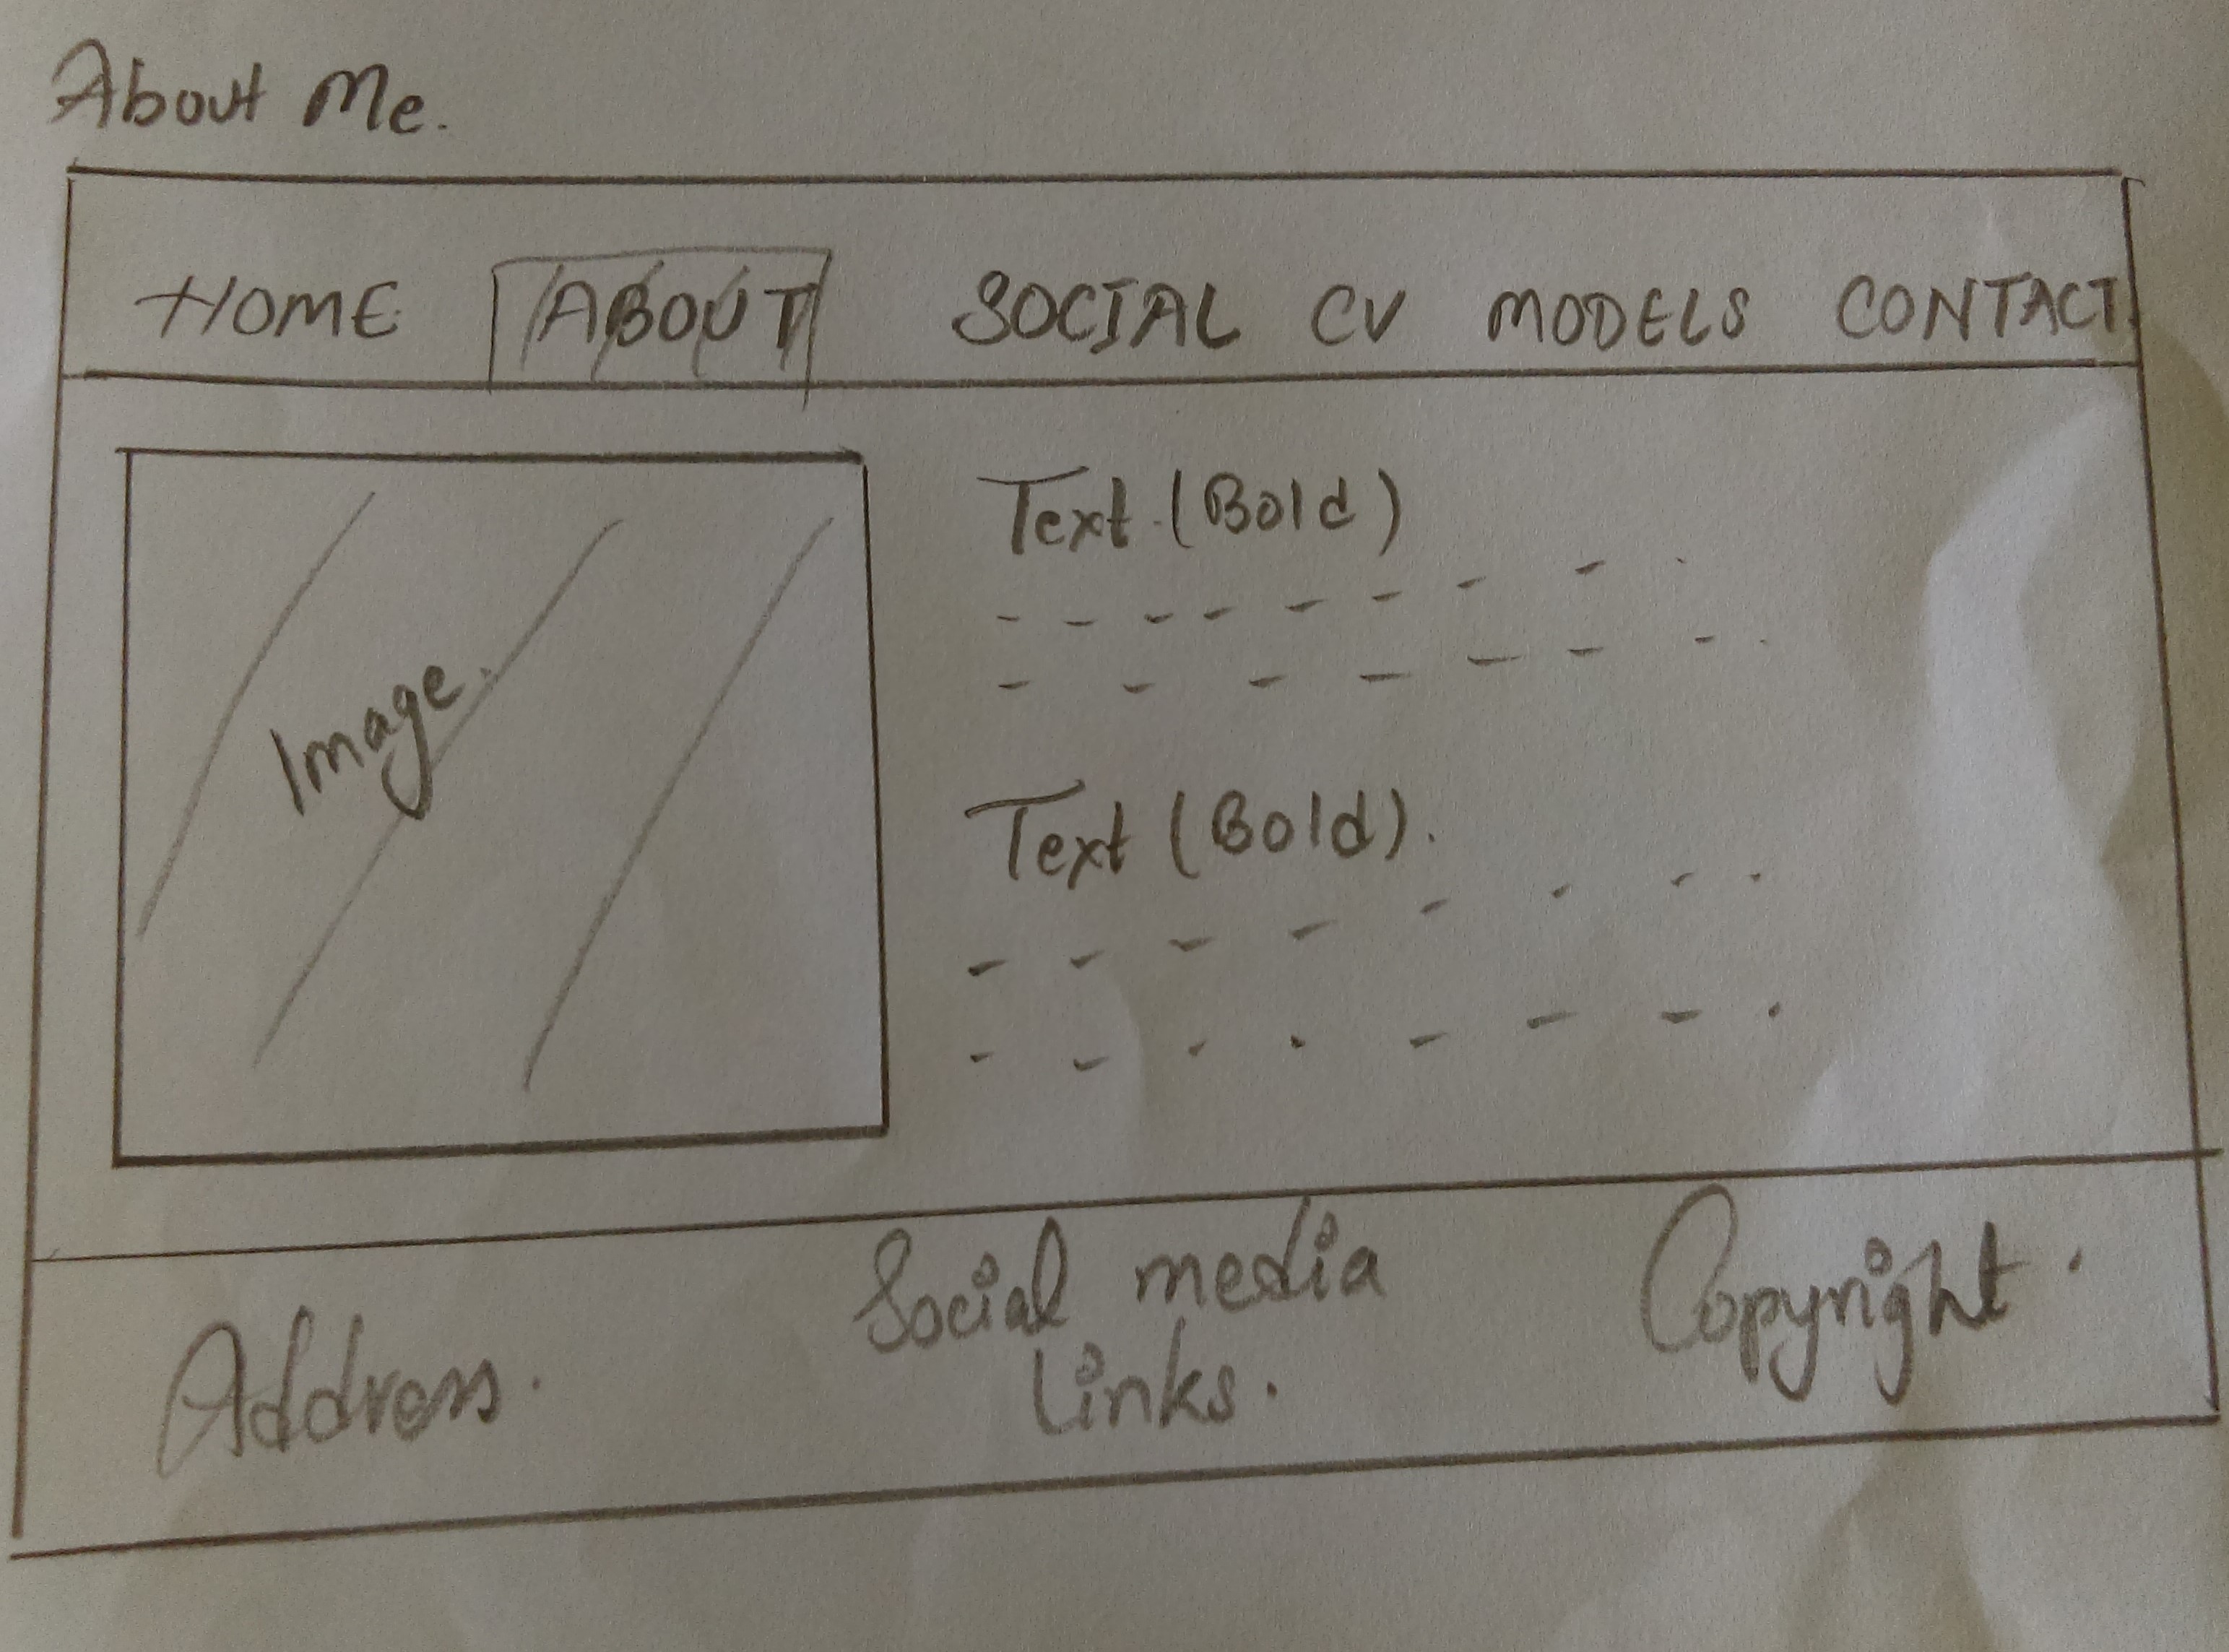 About Me.
HOME ABOUT SOCIAL CV MODELS CONTACT
Image.
Text (Bold)
Text (Bold).
Address.
Social media
Links.
Copyright.